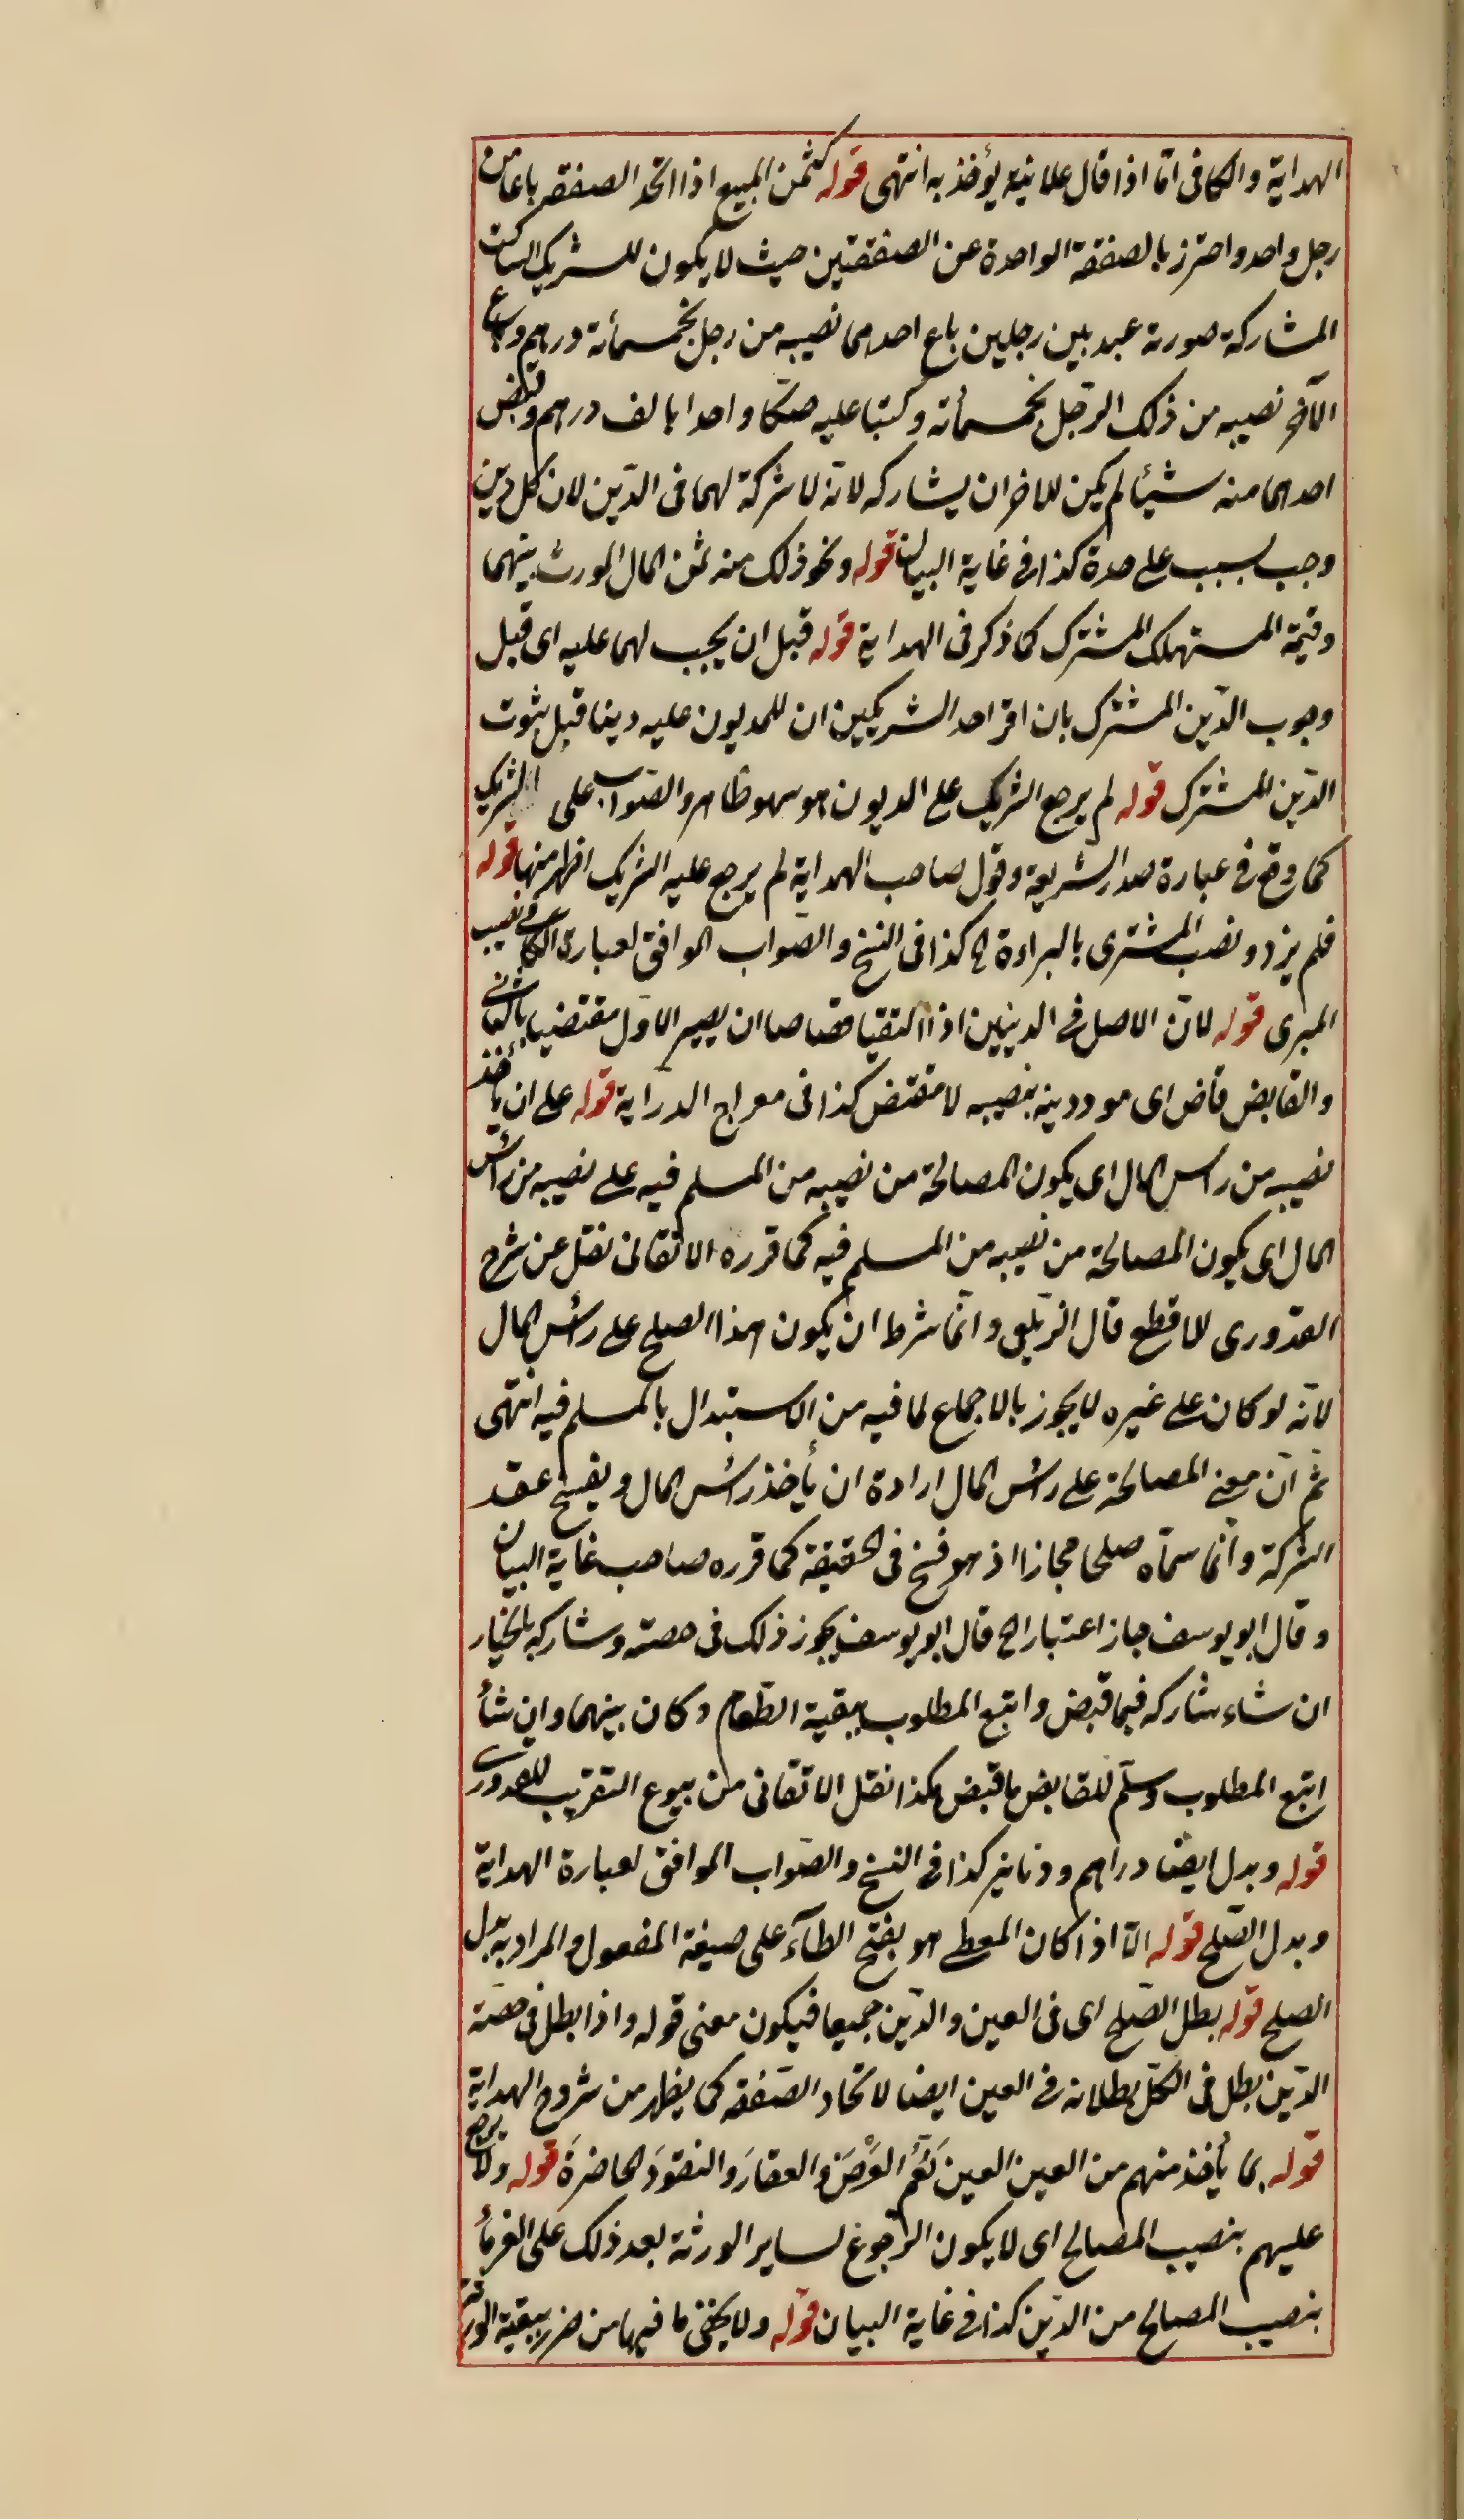 الهداية والكافى امّا اذا قال علانية يؤخذ به انتهى قوله كثمن المبيع اذا اتحد الصفقه باعا من
رجل واحد واحترز بالصفقة الواحدة عن الصفقتين حيث لا يكون للشريك الساكت
المشاركة صورته عبد بين رجلين باع احدهما نصيبه من رجل بخمسمأئة درهم وباع
الآخر نصيبه من ذلك الرّجل بخمسمأئة وكتبا عليه صكّا واحدا بالف درهم وقبض
احدهما منه شيئا لم يكن للاخر ان يشاركه لانّه لا شركة لهما فى الدّين لان كل دين
وجب بسبب على حدة كذا فى غاية البيان قوله ونحو ذلك منه ثمن المال المورث بينهما
وقيمة المستهلك المشترك كما ذكر فى الهداية قوله قبل ان يجب لهما عليه اى قبل
وجوب الدّين المشترك بان اقر احد الشريكين ان للمديون عليه دينا قبل ثبوت
الدّين المشترك قوله لم يرجع الشريك على المديون هو سهو ظاهر والصّواب على الشريك
كما وقع فى عبارة صدر الشريعة وقول صاحب الهداية لم يرجع عليه الشريك اظهر منها قوله
فلم يزدد نصب المشترى بالبراءة الخ كذا فى النسخ والصّواب الموافق لعبارة الكافى نصيب
المبرى قوله لانّ الاصل فى الدينين اذا التقيا قصاصا ان يصير الاوّل مقتضيا بالثانى
والقابض قاض اى مودّ دينه بنصيبه لا مقتض كذا فى معراج الدّراية قوله على ان يأخذ
نصيبه من راس المال اى يكون المصالحة من نصيبه من المسلم فيه على نصيبه من رأس
المال اى يكون المصالحة من نصيبه من المسلم فيه كما قرره الاتقانى نقل عن شرح
القدّورى للاقطع قال الزّيلعى وانّما شرط ان يكون هذا الصلح على رأس المال
لانّه لو كان على غيره لا يجوز بالاجماع لما فيه من الاستبدال بالمسلم فيه انتهى
ثمّ انّ معنى المصالحة على رأس المال ارادة ان يأخذ رأس المال ويفسخ عقد
الشركة وانّما سمّاه صلحا مجازا اذ هو فسخ فى الحقيقة كما قرره صاحب غاية البيان
وقال ابو يوسف جاز اعتبارا الخ قال ابو يوسف يجوز ذلك فى حصته وشاركه بالخيار
ان شاء شاركه فيما قبض واتبع المطلوب ببقية الطّعام وكان بينهما وان شأ
اتبع المطلوب وسلّم للقابض ما قبض هكذا نقل الاتقانى من بيوع التقريب للقدورى
قوله وبدل ايضا دراهم ودنانير كذا فى النسخ والصّواب الموافق لعبارة الهداية
وبدل الصّلح قوله الّا اذا كان المعطى هو بفتح الطّآء على صيغة المفعول والمراد به بدل
الصلح قوله بطل الصّلح اى فى العين والدّين جميعا فيكون معنى قوله واذا بطل فى حصّة
الدّين بطل فى الكلّ بطلانه فى العين ايضا لاتحاد الصّفقه كما يظهر من شروح الهداية
قوله بما يأخذ منهم من العين العين يَعُمّ العَرْضَ والعقارَ والنقودَ الحاضرَةَ قوله ولا يرجع
عليهم بنصيب المصالح اى لا يكون الرّجوع لساير الورثة بعد ذلك على الغرمأ
بنصيب المصالح من الدّين كذا فى غاية البيان قوله ولا يخفى ما فيهما من ضرر ببقية الورثة